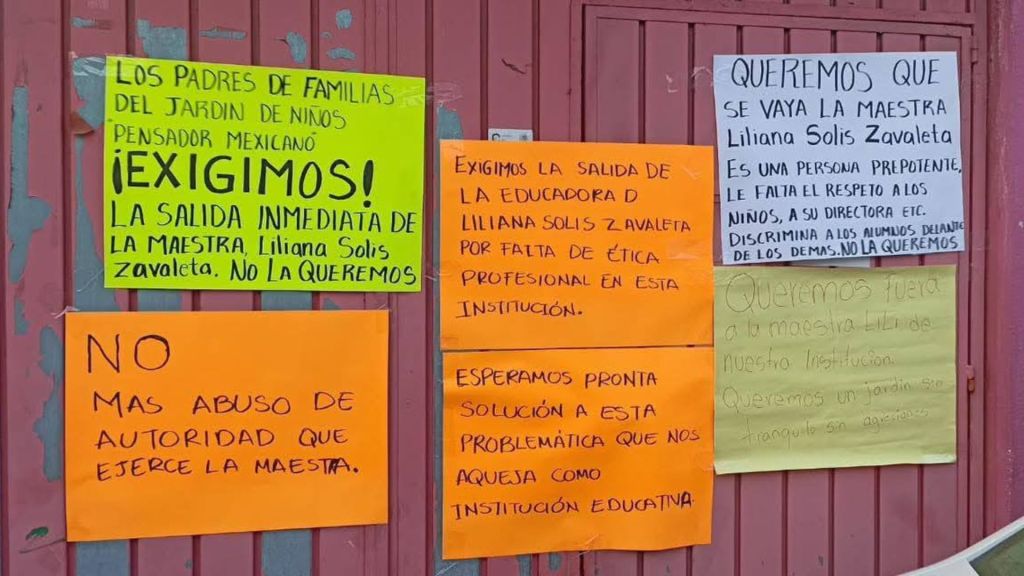 LOS PADRES DE FAMILIAS
DEL JARDIN DE NIÑOS
PENSADOR MEXICANO
¡EXIGIMOS!
LA SALIDA INMEDIATA DE
LA MAESTRA, Liliana Solis
Zavaleta. NO LA QUEREMOS
NO
MAS ABUSO DE
AUTORIDAD QUE
EJERCE LA MAESTRA.
EXIGIMOS LA SALIDA DE
LA EDUCADORA D
LILIANA SOLIS ZAVALETA
POR FALTA DE ÉTICA
PROFESIONAL EN ESTA
INSTITUCIÓN.
ESPERAMOS PRONTA
SOLUCIÓN A ESTA
PROBLEMÁTICA QUE NOS
AQUEJA COMO
INSTITUCIÓN EDUCATIVA.
QUEREMOS QUE
SE VAYA LA MAESTRA
Liliana Solis Zavaleta
ES UNA PERSONA PREPOTENTE,
LE FALTA EL RESPETO A LOS
NIÑOS, A SU DIRECTORA ETC.
DISCRIMINA A LOS ALUMNOS DELANTE
DE LOS DEMAS. NO LA QUEREMOS
Queremos Fuera
a la maestra LiLi de
nuestra Institucion.
Queremos un jardin
tranquilo sin agresiones